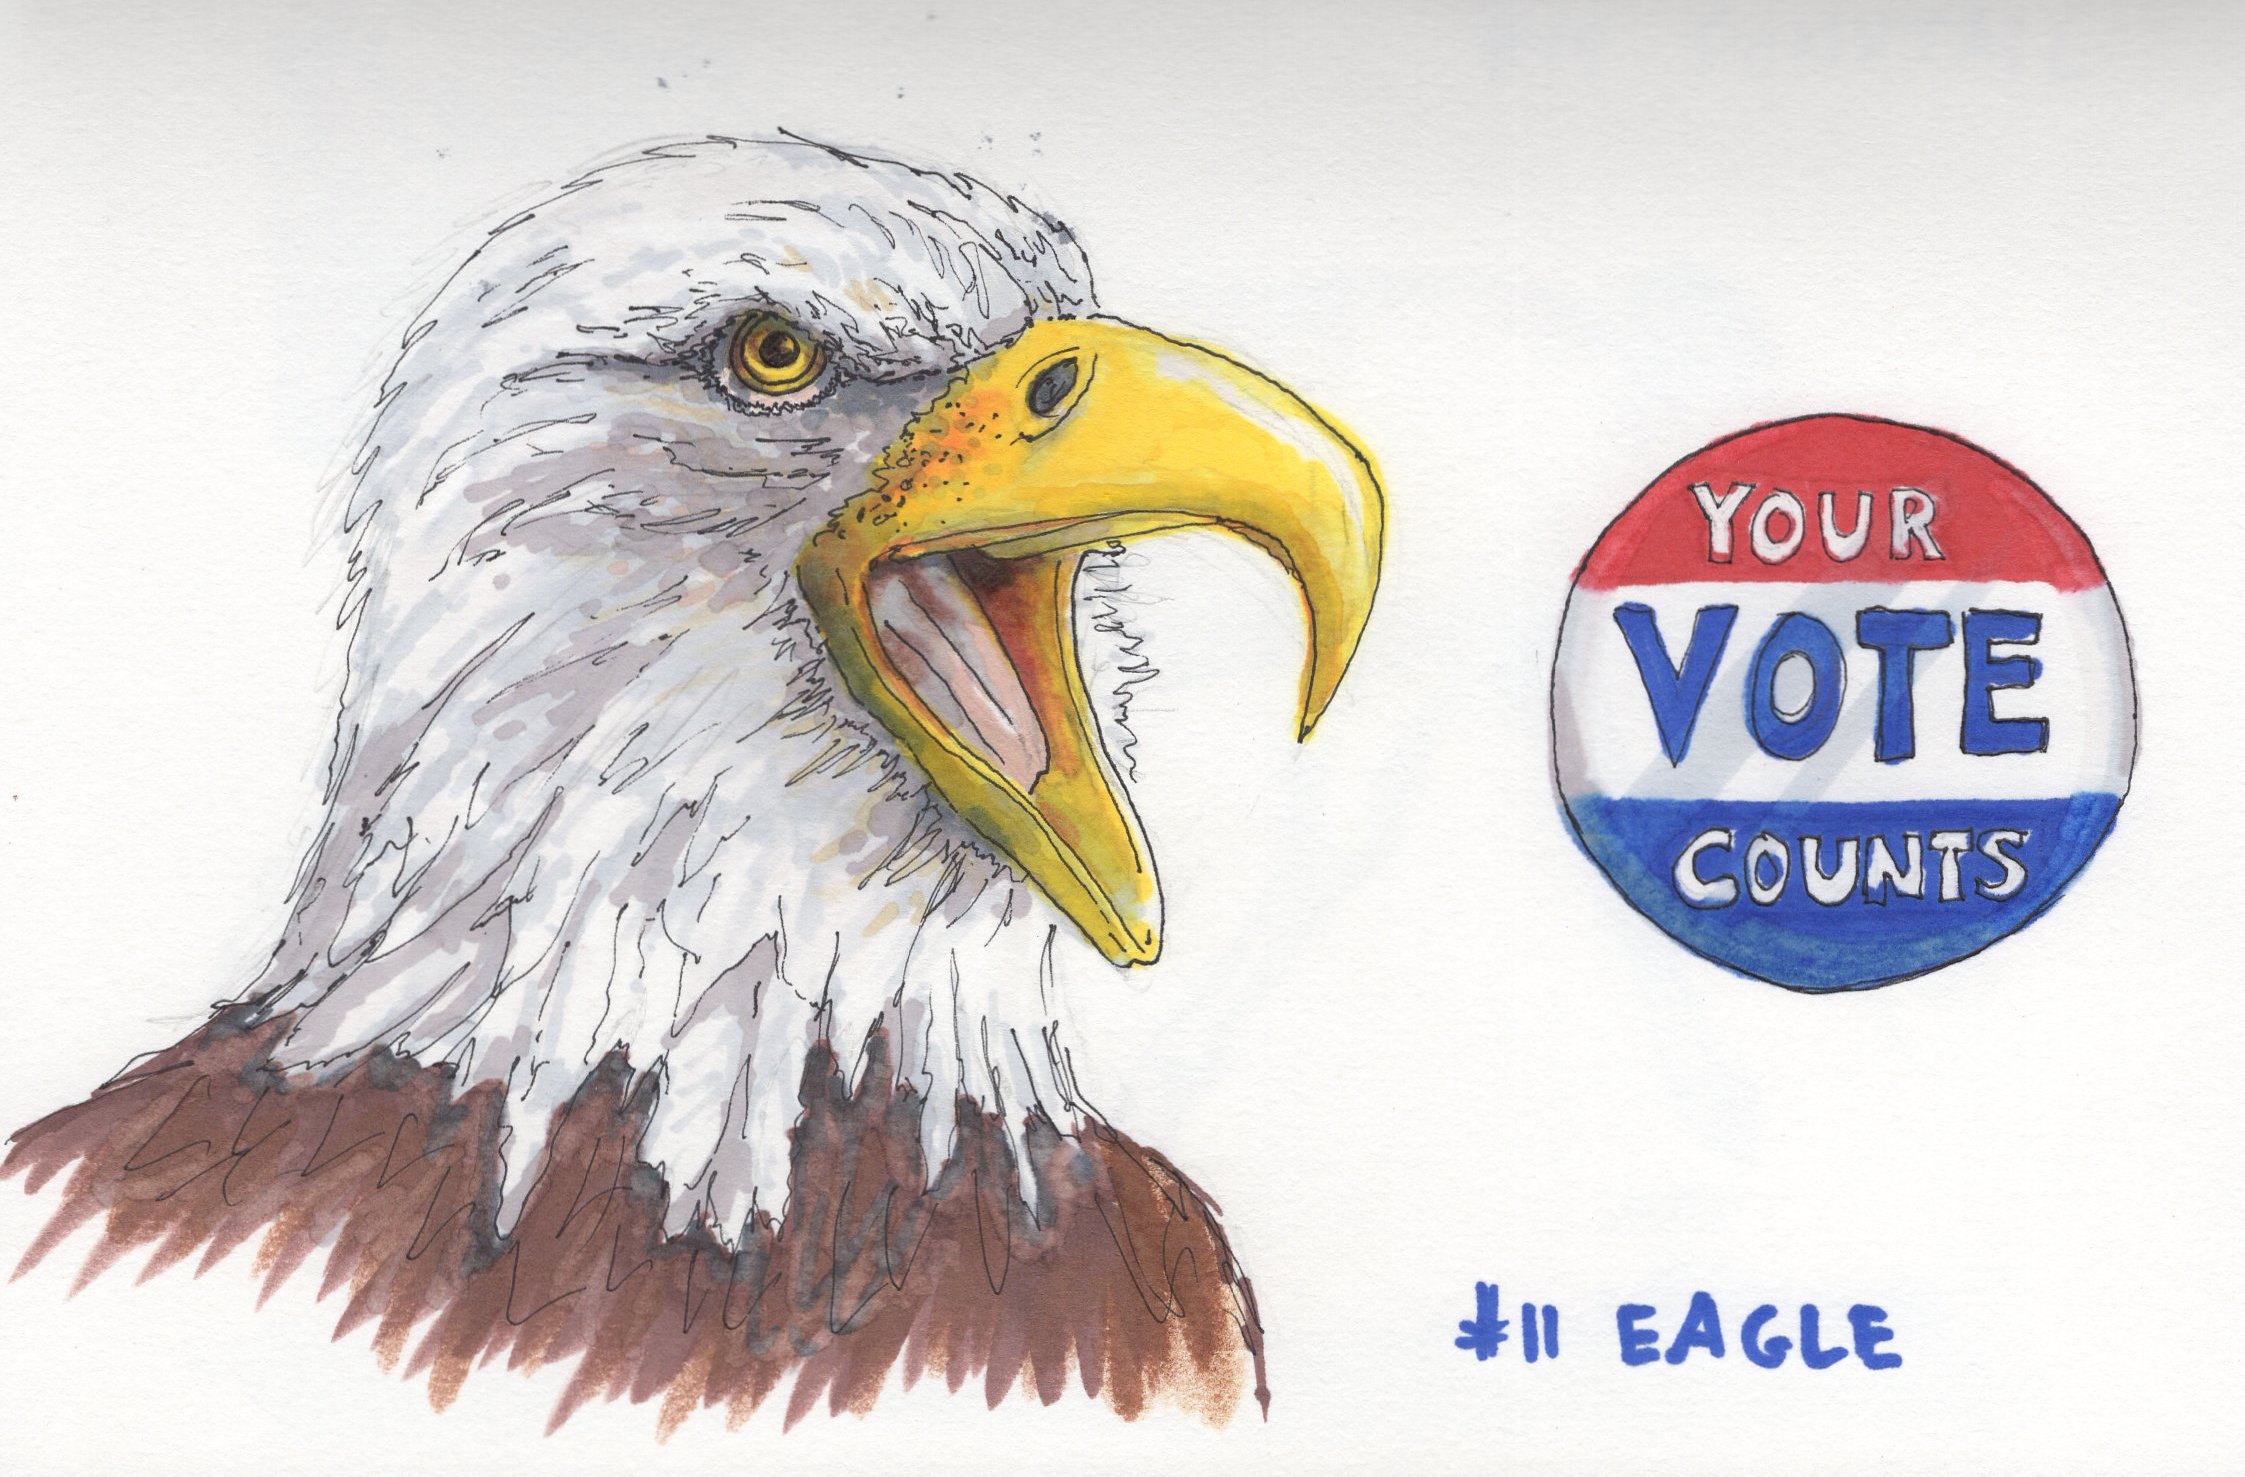 YOUR
VOTE
COUNTS
#11 EAGLE